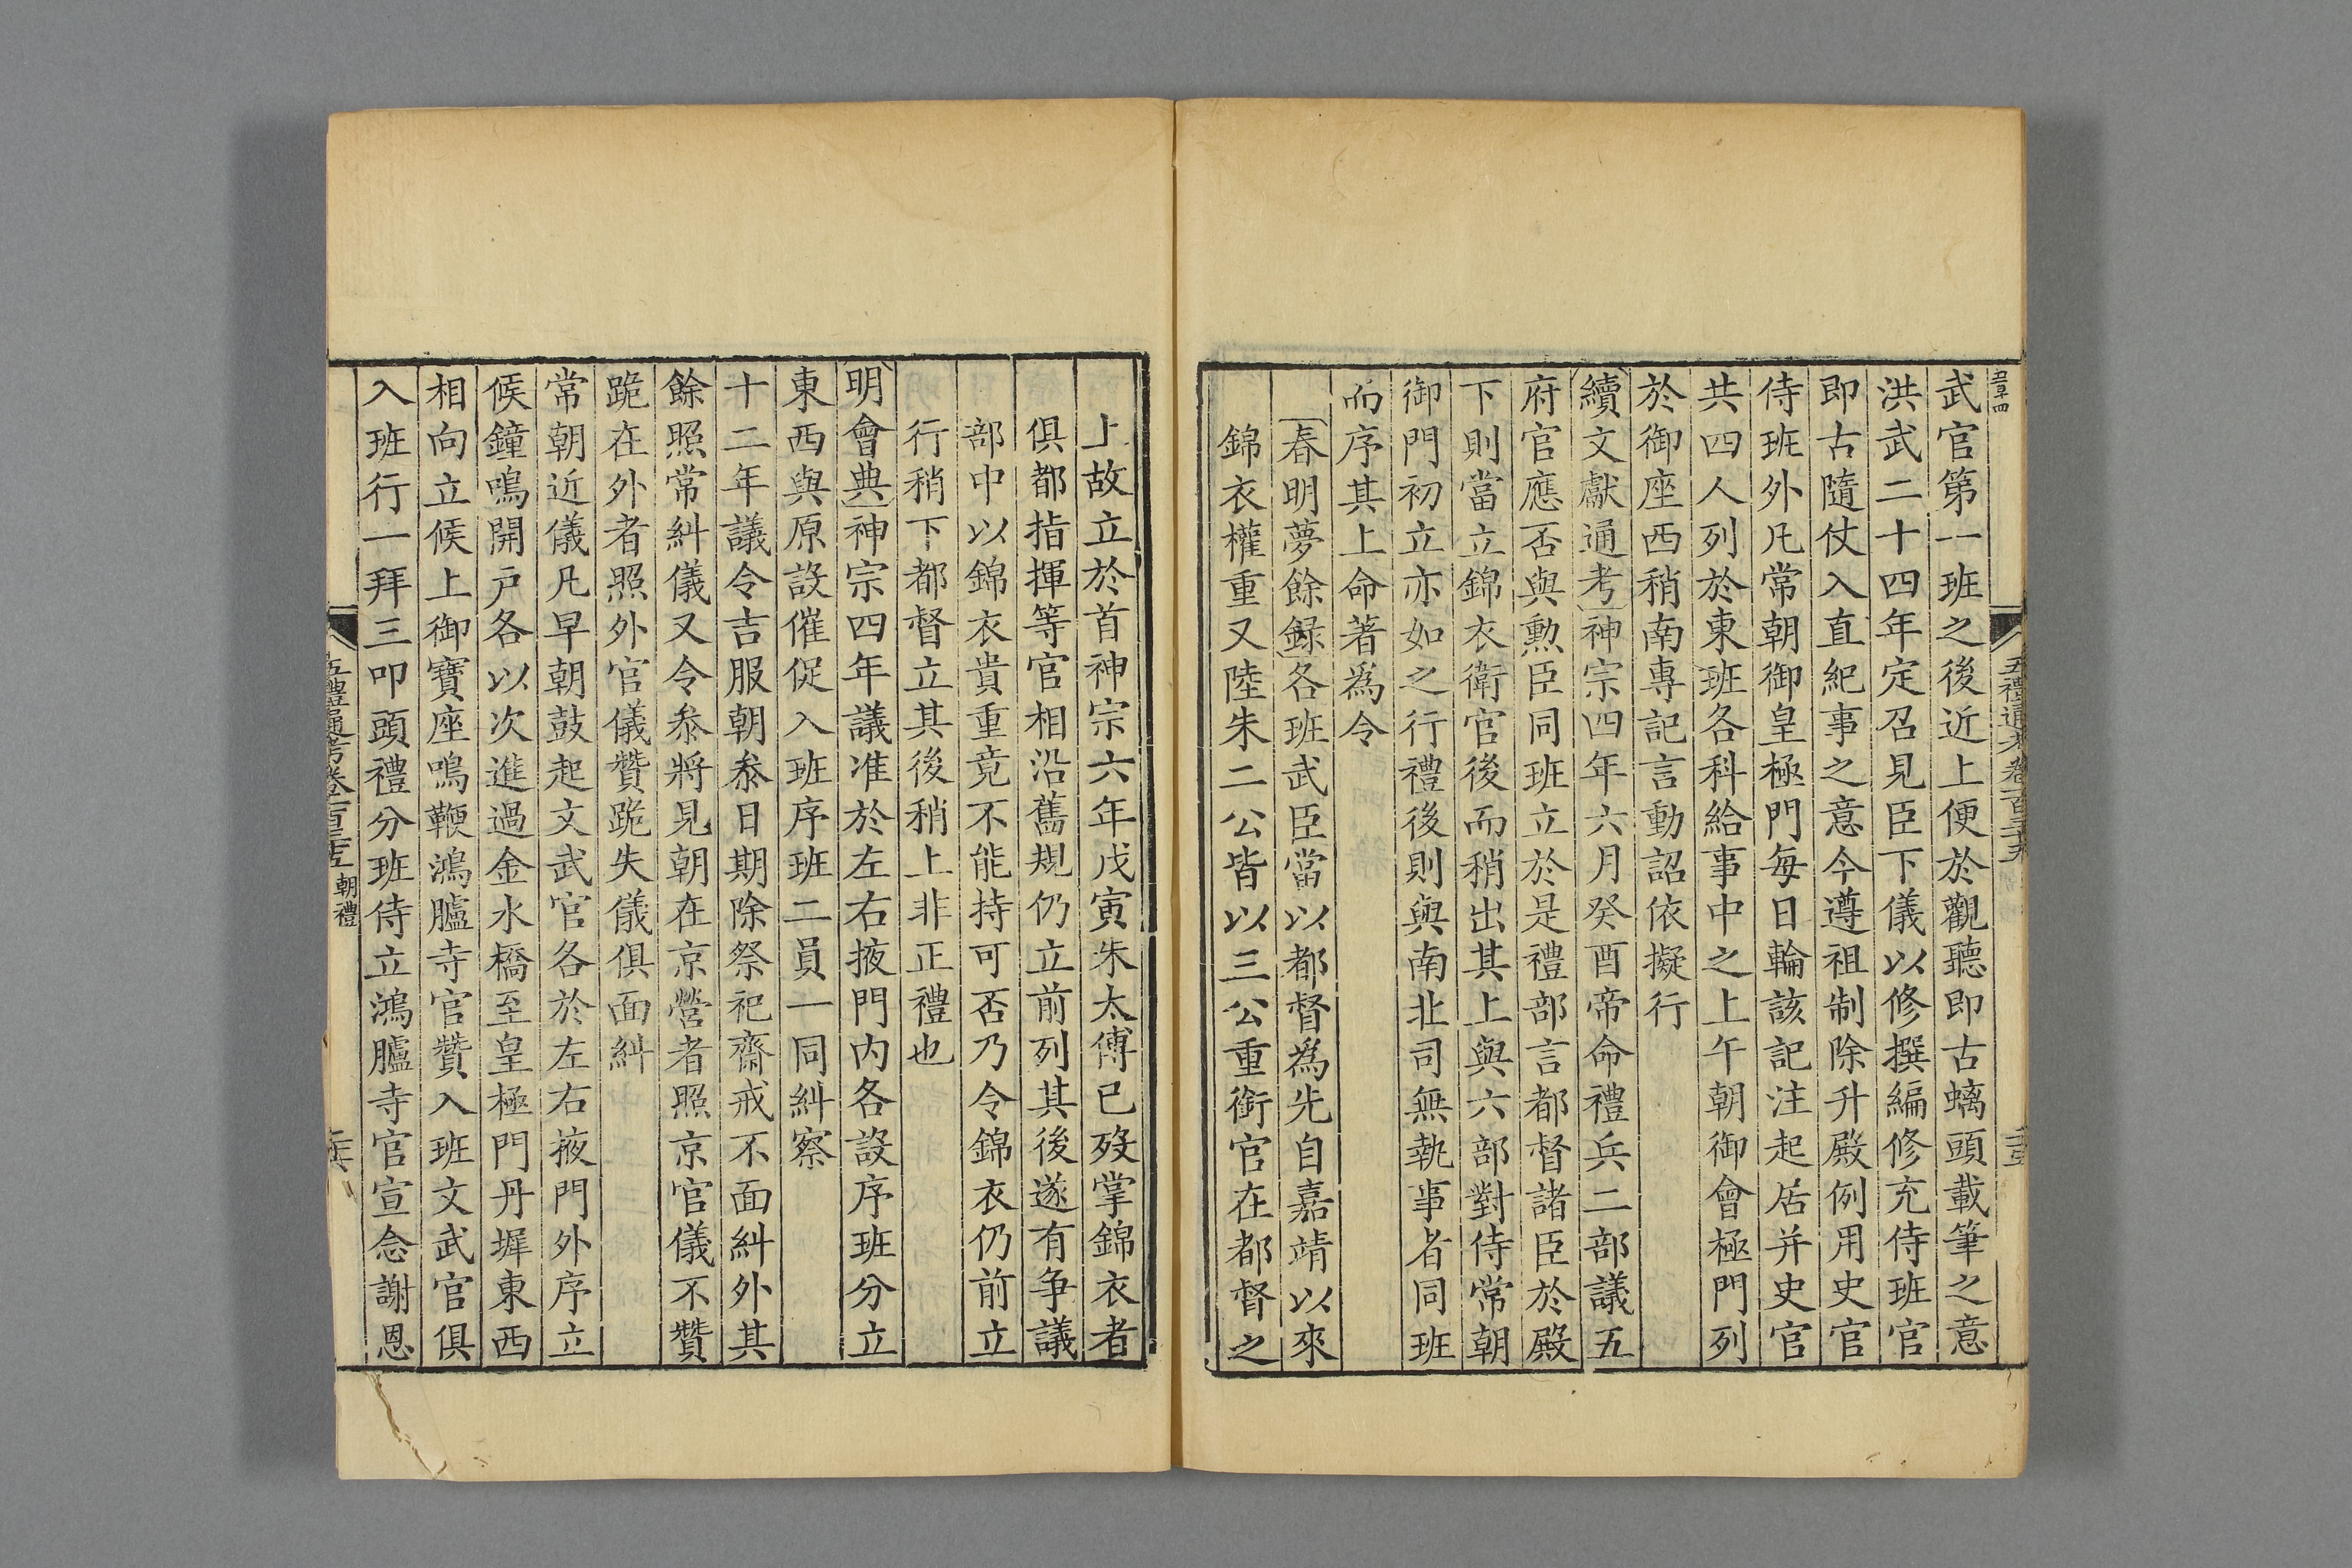 武官第一班之後近上便於觀聽即古螭頭載筆之意
洪武二十四年定召見臣下儀以修撰編修充侍班官
即古隨仗入直紀事之意今遵祖制除升殿例用史官
侍班外凡常朝御皇極門每日輪該記注起居并史官
共四人列於東班各科給事中之上午朝御會極門列
於御座西稍南專記言動詔依擬行
續文獻通考神宗四年六月癸酉帝命禮兵二部議五
府官應否與勲臣同班立於是禮部言都督諸臣於殿
下則當立錦衣衛官後而稍出其上與六部對侍常朝
御門初立亦如之行禮後則與南北司無執事者同班
而序其上命著爲令
春明夢餘録各班武臣當以都督爲先自嘉靖以來
錦衣權重又陸朱二公皆以三公重銜官在都督之
上故立於首神宗六年戊寅朱太傅已歿掌錦衣者
俱都指揮等官相沿舊規仍立前列其後遂有争議
部中以錦衣貴重竟不能持可否乃令錦衣仍前立
行稍下都督立其後稍上非正禮也
明會典神宗四年議准於左右掖門内各設序班分立
東西與原設催促入班序班二員一同糾察
十二年議令吉服朝叅日期除祭祀齋戒不面糾外其
餘照常糾儀又令叅將見朝在京營者照京官儀不贊
跪在外者照外官儀贊跪失儀俱面糾
常朝近儀凡早朝鼓起文武官各於左右掖門外序立
候鐘鳴開戸各以次進過金水橋至皇極門丹墀東西
相向立候上御寶座鳴鞭鴻臚寺官贊入班文武官俱
入班行一拜三叩頭禮分班侍立鴻臚寺官宣念謝恩
五禮通考卷一百三十五 朝禮